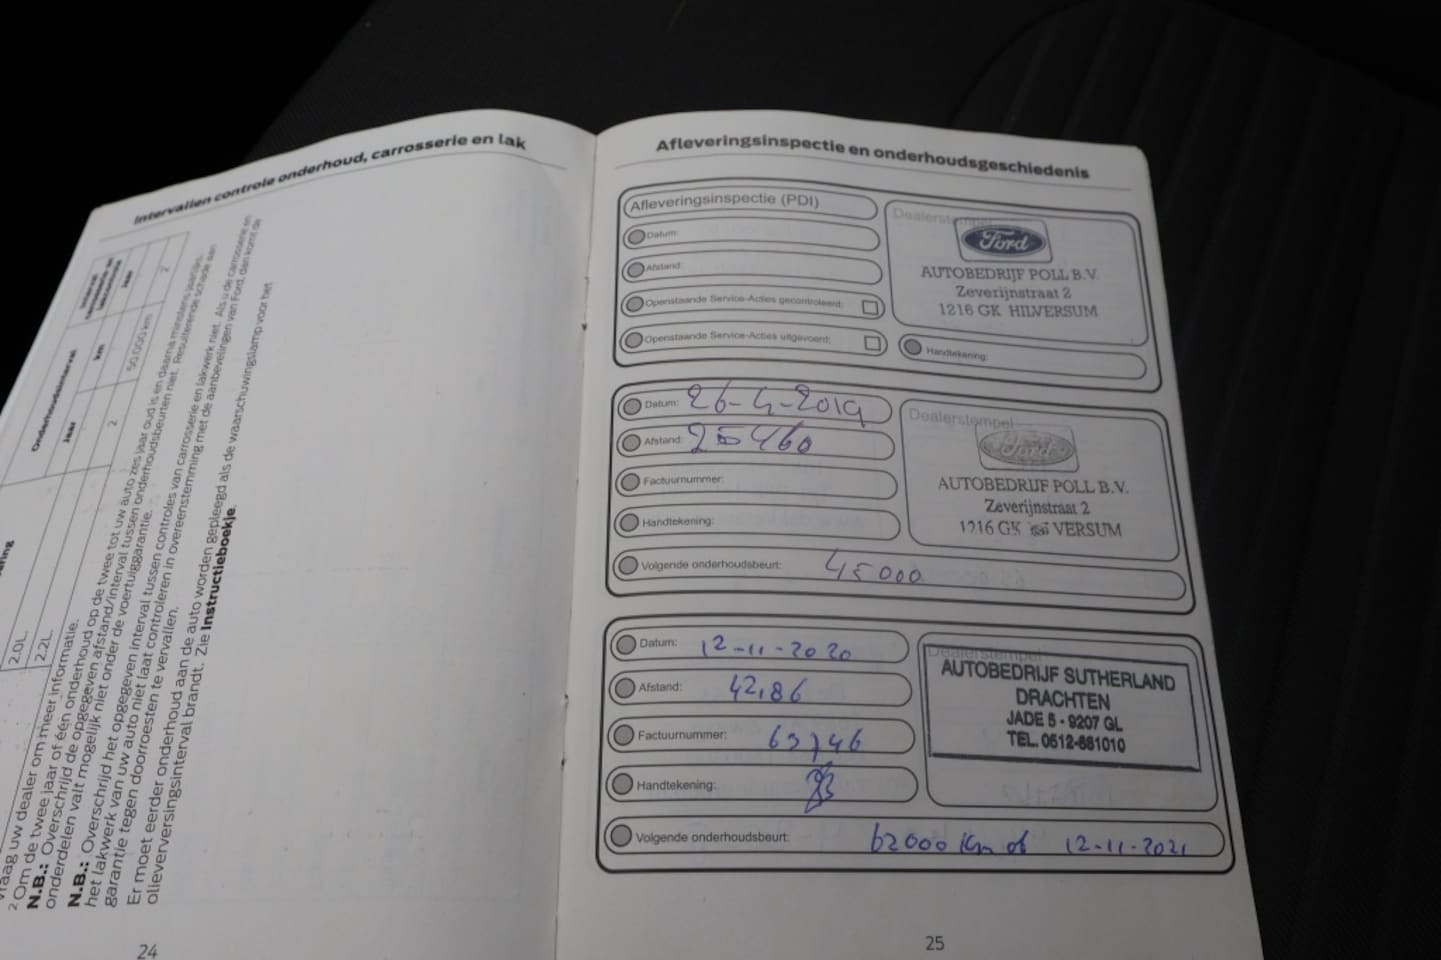 Intervallen controle onderhoud, carrosserie en lak
Onderhoudsinterval
Jaar
km
Jaar
2
50.000 km
2
2.0L
2.2L
vraag uw dealer om meer informatie.
2 Om de twee jaar of één onderhoud op de twee tot uw auto zes jaar oud is en daarna minstens jaarlijks.
N.B.: Overschrijd de opgegeven afstand/interval tussen onderhoudsbeurten niet. Resulterende schade aan
onderdelen valt mogelijk niet onder de voertuiggarantie.
N.B.: Overschrijd het opgegeven interval tussen controles van carrosserie en lakwerk niet. Als u de carrosserie en
het lakwerk van uw auto niet laat controleren in overeenstemming met de aanbevelingen van Ford, dan komt de
garantie tegen doorroesten te vervallen.
Er moet eerder onderhoud aan de auto worden gepleegd als de waarschuwingslamp voor het
olieverversingsinterval brandt. Zie Instructieboekje.
24
Afleveringsinspectie en onderhoudsgeschiedenis
Afleveringsinspectie (PDI)
Datum:
Afstand:
Openstaande Service-Acties gecontroleerd:
Openstaande Service-Acties uitgevoerd:
Dealerstempel
Ford
AUTOBEDRIJF POLL B.V.
Zeverijnstraat 2
1216 GK HILVERSUM
Handtekening:
Datum: 26-4-2019
Afstand: 25460
Factuurnummer:
Handtekening:
Volgende onderhoudsbeurt: 45000
Dealerstempel
Ford
AUTOBEDRIJF POLL B.V.
Zeverijnstraat 2
1216 GK VERSUM
Datum: 12-11-2020
Afstand: 42,86
Factuurnummer:
Handtekening:
Volgende onderhoudsbeurt: 62000 Km of 12-11-2021
Dealerstempel
AUTOBEDRIJF SUTHERLAND
DRACHTEN
JADE 5 - 9207 GL
TEL. 0512-581010
25